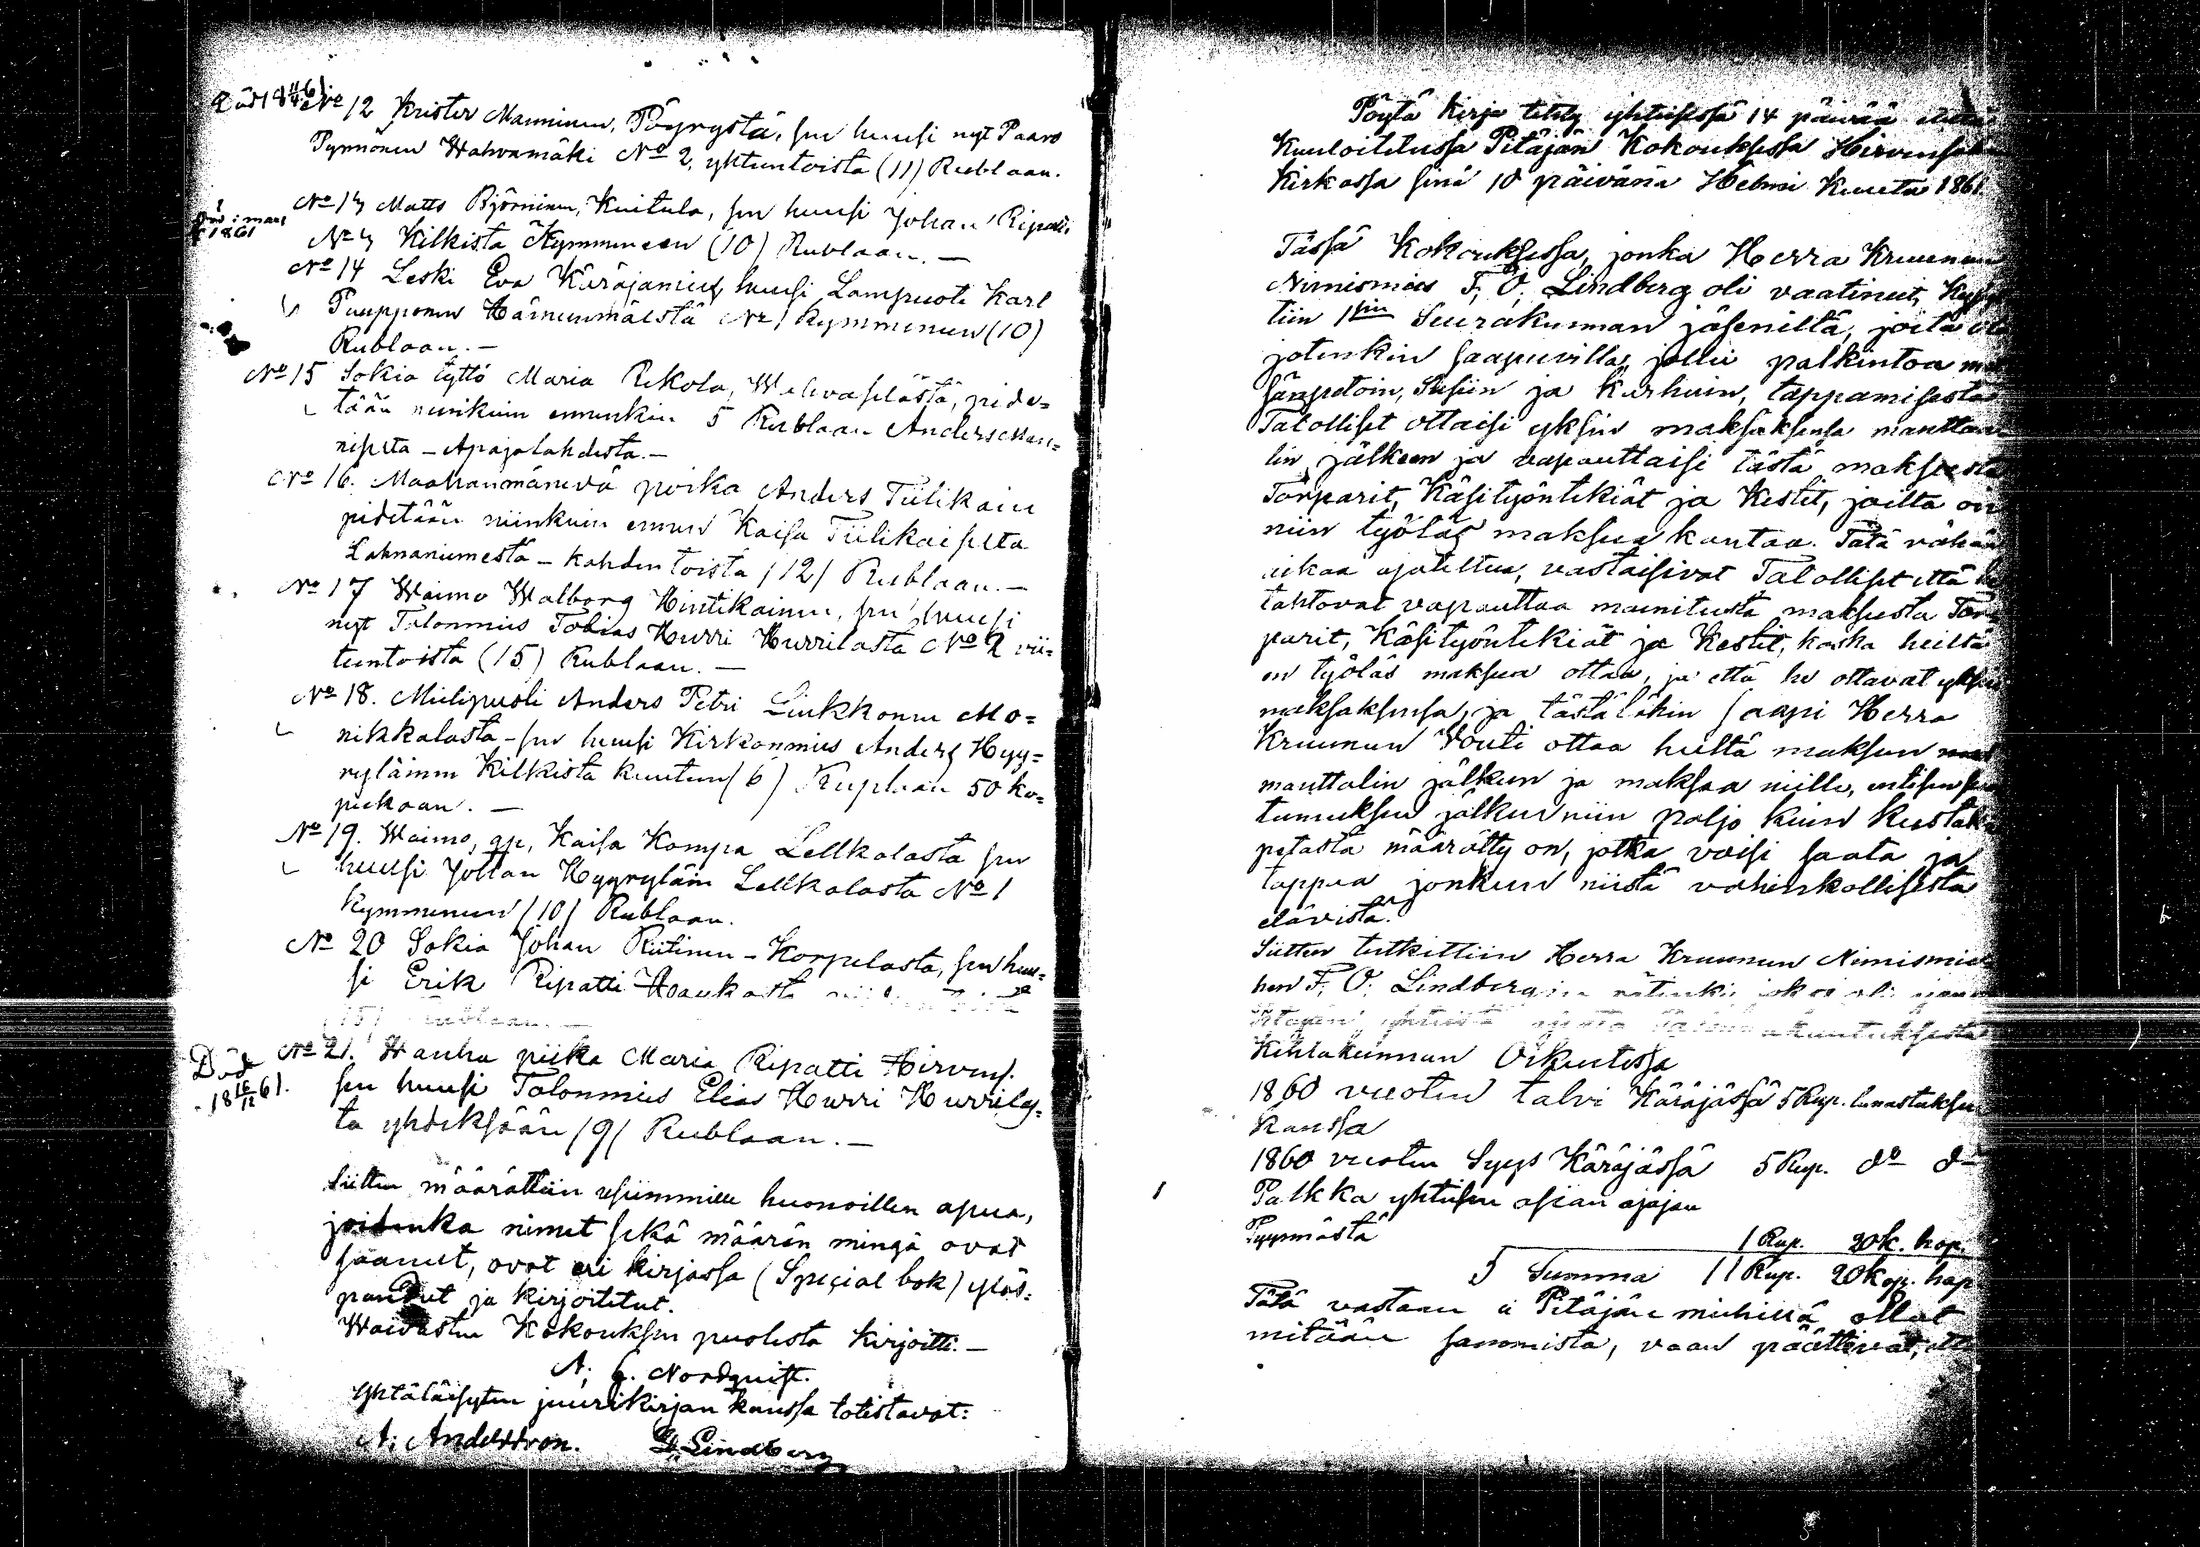 Död 18 11/4 61
No 12 Krister Manninen, Pöyrystä, sen huusi nyt Paavo
Pynnönen Wahvamäki No 2, yhtentoista (11) Rublaan.
Död i mars
1861
No 13 Matts Björninen, Kuitula, sen huusi Johan Ripatti
No 3 Kilkistä Kymmeneen (10) Rublaan. —
No 14 Leski Eva Käräjamies, huusi Lampuoti Karl
Paupponen Härnenmäestä No 1 Kymmenen (10)
Rublaan. —
No 15 Sokia tyttö Maria Rekola, Wehvaselästä, pide=
tään niinkuin ennenkin 5 Rublaan Anders Man=
niselta – Apajalahdesta. —
No 16. Maahanmänevä poika Anders Tiilikain
pidetään niinkuin ennen Kaisa Tiilikaiselta
Lahnaniemestä – Kahdentoista (12) Rublaan. —
No 17 Waimo Walborg Hintikainen, sen huusi
nyt Talonmies Tobias Hurri Hurrilasta No 2 vii=
tentoista (15) Rublaan. —
No 18. Mielipuoli Anders Petri Liukkonen Mo=
nikkalasta – sen huusi Kirkonmies Anders Hyy=
ryläinen Kilkistä kuuteen (6) Ruplaan 50 ko=
pekaan. —
No 19. Waimo, gp, Kaisa Kompa Lellkalasta sen
huusi Johan Hyyryläin Lellkalasta No 1
Kymmenen (10) Rublaan.
No 20 Sokia Johan Riitinen – Korpelasta, sen huu=
si Erik Ripatti Haukasta
(15) Rublaan. —
Död
18 16/12 61.
No 21. Wanha piika Maria Ripatti Hirvens.
sen huusi Talonmies Elias Hurri Hurrilas=
ta yhdeksään (9) Rublaan. —
Siitten määrättiin usiimmille huonoillen apua,
joidenka nimet sekä määrän mingä ovat
saanet, ovat eri kirjassa (Special bok) ylös=
pandut ja kirjoitetut.
Waivasten Kokouksen puolesta kirjoitti. —
A. G. Nordqvist.
Yhtäläisyten juurikirjan kanssa totistavat:
A. Anderson. G. Lindberg
Pöytä Kirja tehty yhteisessä 14 päivää etellä
Kuuloitetussa Pitäjän Kokouksessa Hirvensalm
Kirkossa sinä 10 päivänä Helmi Kuuta 1861.
Tässä Kokouksessa, jonka Herra Kruunun
Nimismies F. O. Lindberg oli vaatinut, Kysyt
tiin 1sin Seurakunnan jäseniltä, joita oli
jotenkin saapuvillas, jollei palkintoa
sängetoin, Susiin ja Karhuin, tappamisesta
Talolliset ottaisi yksin maksaksensa manttaa
lin jälkeen ja vapauttaisi tästä maksusta
Torparit, Käsityöntekiät ja Kestit, joilta on
niin työläs maksua kantaa. Tätä vähän
aikaa ajateltua, vastaisivat Talolliset että he
tahtovat vapauttaa mainitusta maksusta Tor=
parit, Käsityöntekiät ja Kestit, koska heiltä
on työläs maksua ottaa, ja että he ottavat yksin
maksaksensa, ja tästäläkin saapi Herra
Kruunun Vouti ottaa heiltä maksun
manttalin jälkeen ja maksaa niille, entisen suos
tumuksen jälkeen niin paljo kuin kustakin
petosta määrätty on, jotka voisi saata ja
tappaa jonkun niistä vahinkollisista
elävistä.
Siitten tutkittiin Herra Kruunun Nimismie
hen F. O. Lindbergin rätinki joka oli
Pitäjän yhteistä
Kihlakunnan Oikeutessa
1860 vuoten talvi Käräjässä 5 Rup. lunastuksen
kanssa
1860 vuoten Syys Käräjässä 5 Rup. do do
Palkka yhteisen asian ajajan
Pyynnöstä
1 Rup. 20 k. hop.
Summa 11 Rup. 20 kop. hop
Tätä vastaan ei Pitäjän miehillä ollut
mitään sanomista, vaan päättivät, että